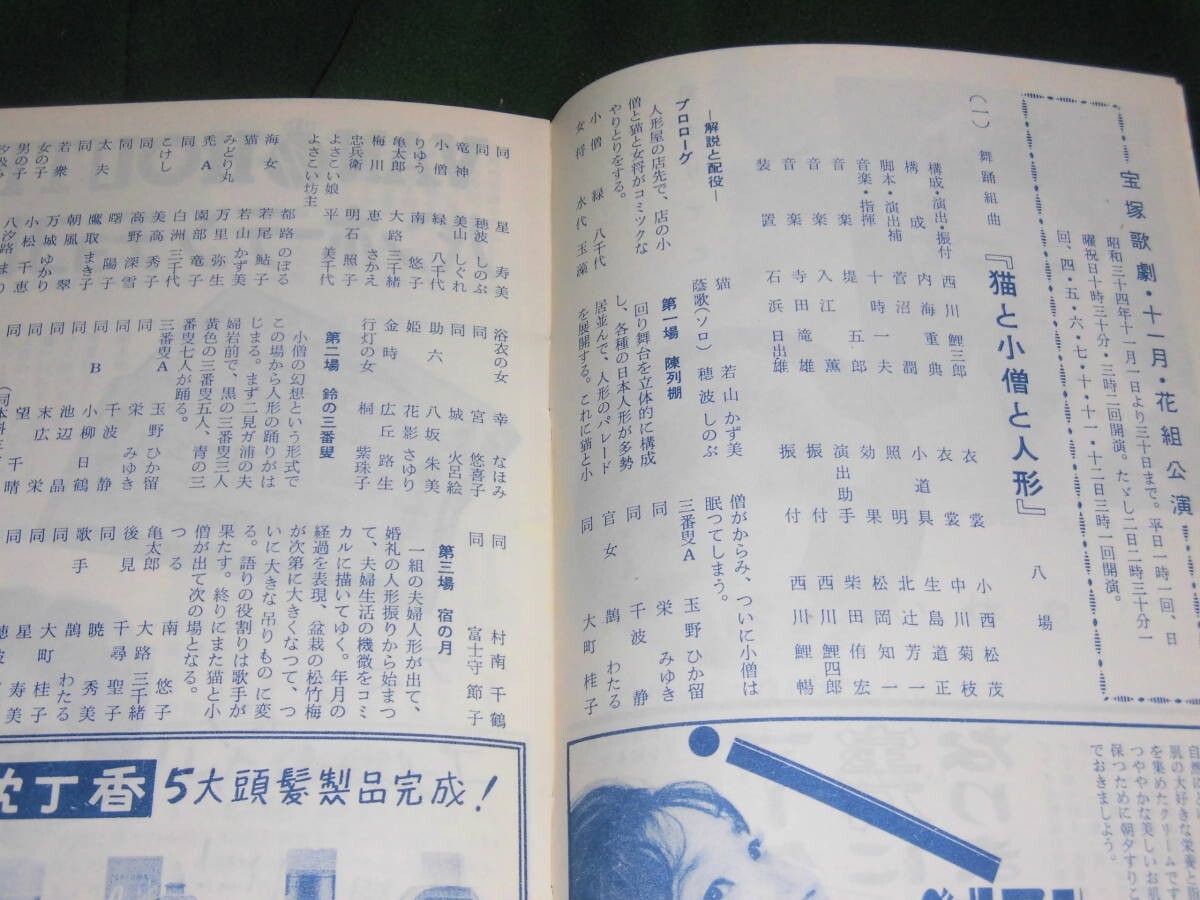 宝塚歌劇・十一月・花組公演
昭和三十四年十一月一日より三十日まで。平日一時一回、日
曜祝日十時三十分・三時二回開演。たゞし二日二時三十分一
回、四・五・六・七・十・十一・十二日三時一回開演。
(一) 舞踊組曲 『猫と小僧と人形』 八場
構成・演出・振付 西川鯉三郎
構成 内海重典
脚本・演出補 菅沼潤
音楽・指揮 十時一夫
音楽 堤五郎
音楽 入江薫
音楽 寺田滝雄
装置 石浜日出雄
衣裳 小西松茂
衣裳 中川菊枝
小道具 生島道正
照明 北辻芳一
効果 松岡知一
演出助手 柴田侑宏
振付 西川鯉四郎
振付 西川鯉暢
―解説と配役―
プロローグ
人形屋の店先で、店の小
僧と猫と女将がコミックな
やりとりをする。
小僧 緑八千代
女将 水代玉藻
猫 若山かず美
蔭歌(ソロ) 穂波しのぶ
第一場 陳列棚
回り舞台を立体的に構成
し、各種の日本人形が多勢
居並んで、人形のパレード
を展開する。これに猫と小
僧がからみ、ついに小僧は
眠つてしまう。
三番叟A 玉野ひか留
同 栄みゆき
同 千波静
官女 鵲わたる
同 大町桂子
同 星寿美
同 穂波しのぶ
竜神 美山しぐれ
小僧 緑八千代
りゆう 南悠子
亀太郎 大路三千緒
梅川 恵さかえ
忠兵衛 明石照子
よさこい娘
よさこい坊主 平美千代
海女 都路のぼる
猫 若尾鮎子
みどり丸 若山かず美
禿A 万里弥生
同 園部竜子
こけし 白洲三千代
同 美高秀子
太夫 高野深雪
若衆 曙陽子
女の子 鷹取まき子
男の子 朝風翠
万城ゆかり
小松千恵
八汐路まり
浴衣の女 幸なほみ
同 宮悠喜子
同 城火呂絵
助六 八坂朱美
姫 花影さゆり
金時 広丘路生
行灯の女 桐紫珠子
第二場 鈴の三番叟
小僧の幻想という形式で
この場から人形の踊りがは
じまる。まず二見ガ浦の夫
婦岩前で、黒の三番叟三人
黄色の三番叟五人、青の三
番叟七人が踊る。
三番叟A 玉野ひか留
同 栄みゆき
同 千波静
B 小柳日鶴
同 池辺晶
同 末広栄
同 望千晴
同 村南千鶴
同 富士守節子
第三場 宿の月
一組の夫婦人形が出て、
婚礼の人形振りから始まつ
て、夫婦生活の機微をコミ
カルに描いてゆく。年月の
経過を表現、盆栽の松竹梅
が次第に大きくなつて、つ
いに大きな吊りものに変
る。語りの役割りは歌手が
果たす。終りにまた猫と小
僧が出て次の場となる。
つる 南悠子
亀太郎 大路三千緒
後見 千尋聖子
同 暁秀美
歌手 鵲わたる
同 大町桂子
同 星寿美
同 穂波
香丁 5大頭髪製品完成!
肌の大好きな栄養と脂
を集めたクリームです
つややかな美しいお肌
保つために朝夕すりこ
でおきましよう。